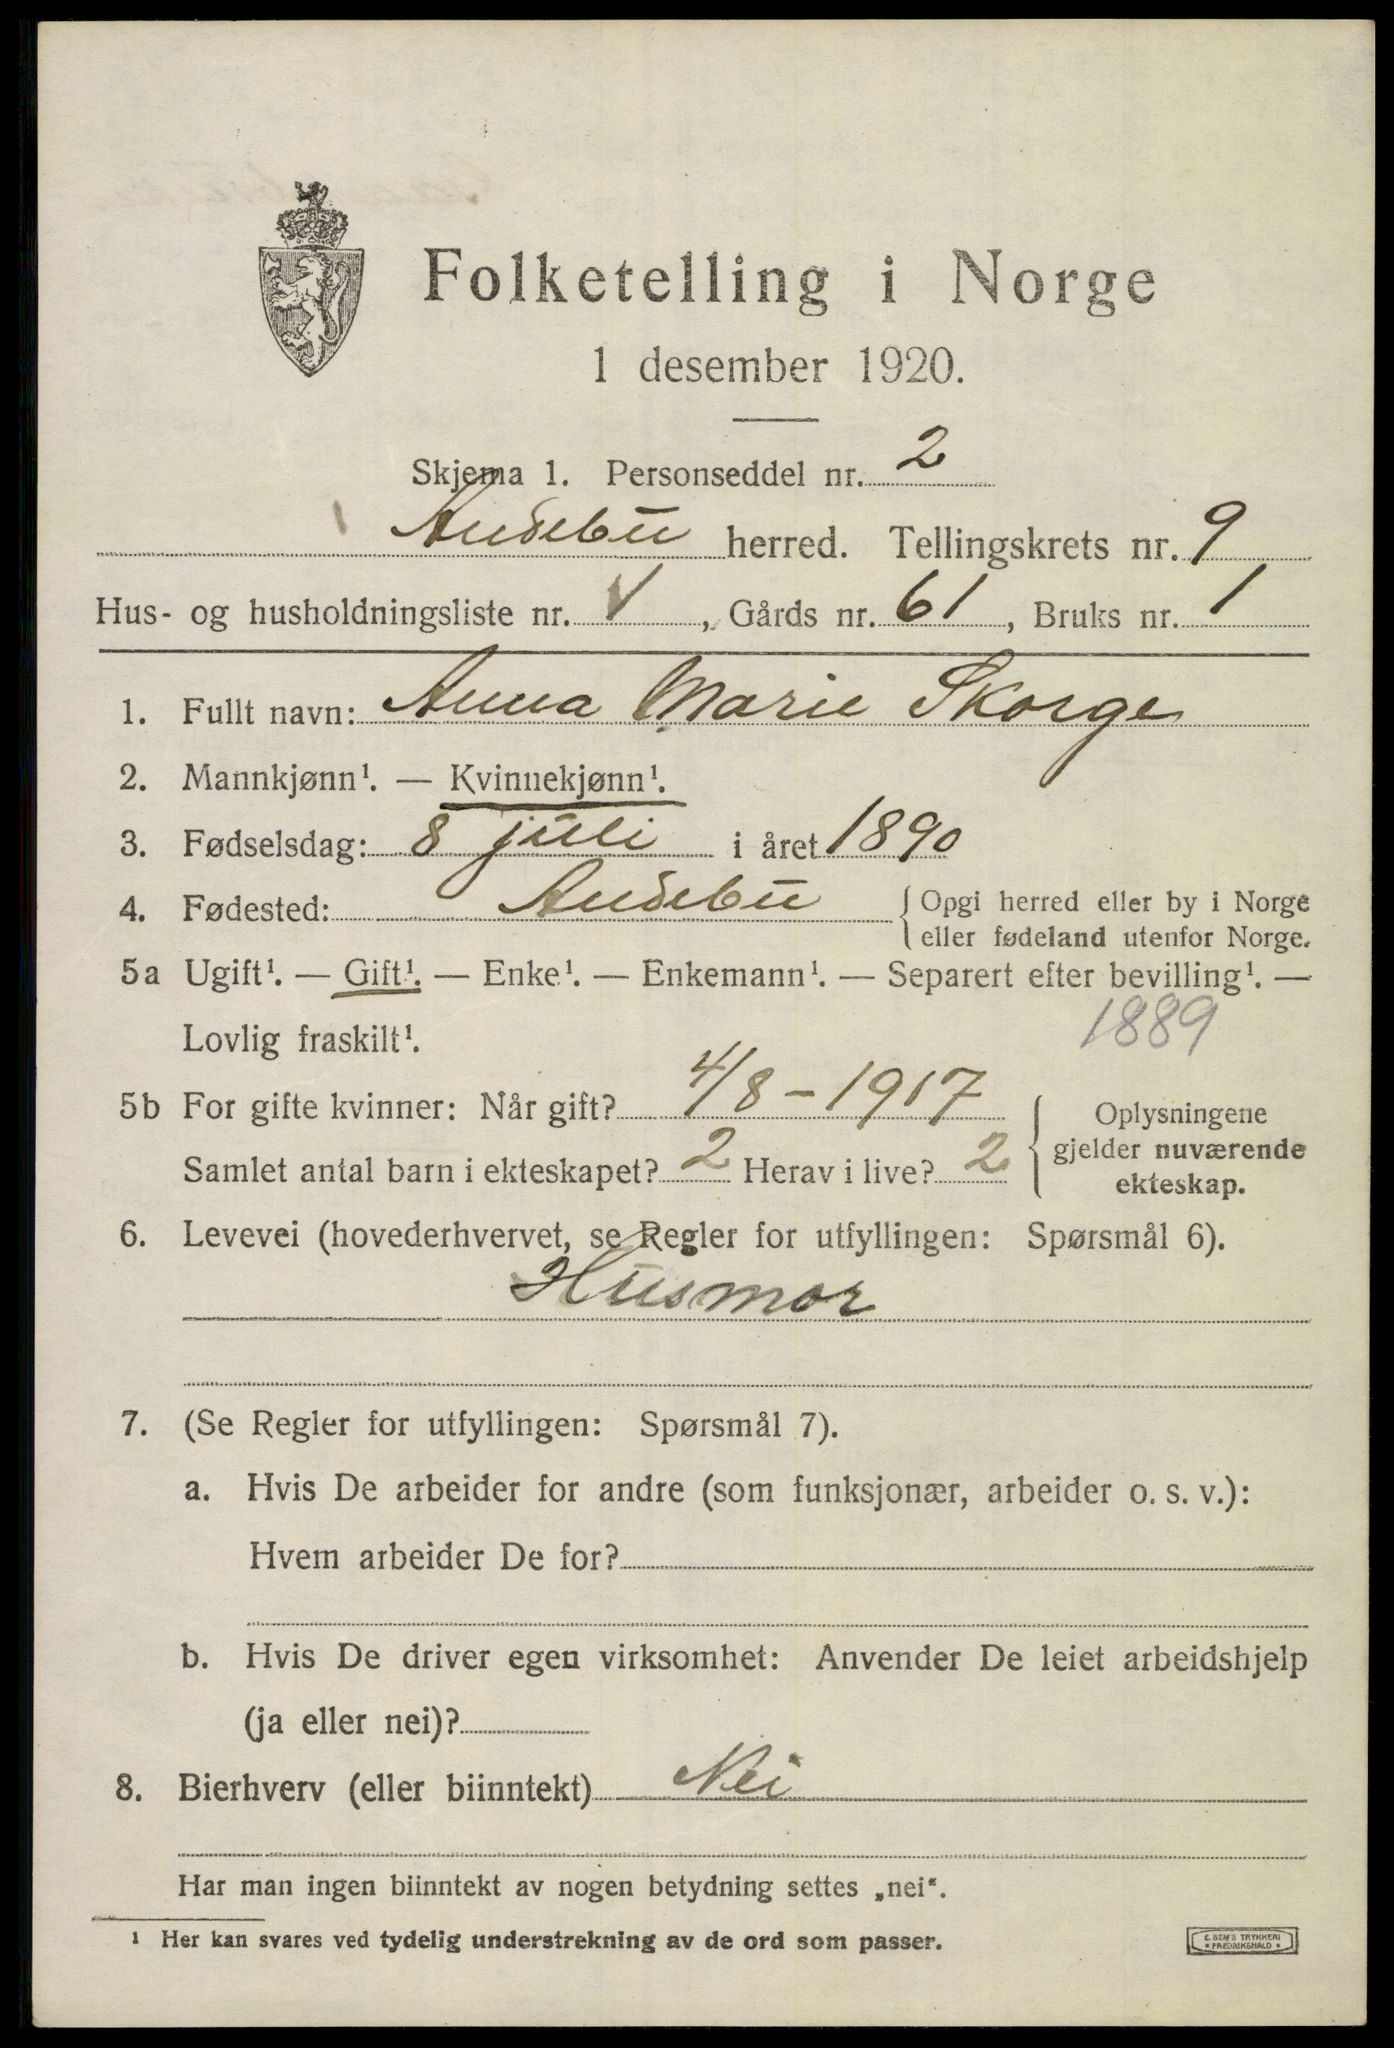 Folketelling i Norge
1 desember 1920.
Skjema 1. Personseddel nr. 2
Andebu herred. Tellingskrets nr. 9
Hus- og husholdningsliste nr. 1, Gårds nr. 61, Bruks nr. 1
1. Fullt navn: Anna Marie Skorge
2. Mannkjønn¹. — Kvinnekjønn¹.
3. Fødselsdag: 8 juli i året 1890
4. Fødested: Andebu { Opgi herred eller by i Norge
eller fødeland utenfor Norge.
5a Ugift¹. — Gift¹. — Enke¹. — Enkemann¹. — Separert efter bevilling¹. —
Lovlig fraskilt¹. 1889
5b For gifte kvinner: Når gift? 4/8 - 1917
Samlet antal barn i ekteskapet? 2 Herav i live? 2
{ Oplysningene
gjelder nuværende
ekteskap.
6. Levevei (hovederhvervet, se Regler for utfyllingen: Spørsmål 6).
Husmor
7. (Se Regler for utfyllingen: Spørsmål 7).
a. Hvis De arbeider for andre (som funksjonær, arbeider o. s. v.):
Hvem arbeider De for?
b. Hvis De driver egen virksomhet: Anvender De leiet arbeidshjelp
(ja eller nei)?
8. Bierhverv (eller biinntekt) Nei
Har man ingen biinntekt av nogen betydning settes „nei“.
¹ Her kan svares ved tydelig understrekning av de ord som passer.
E. SEM'S TRYKKERI
• FREDRIKSHALD •